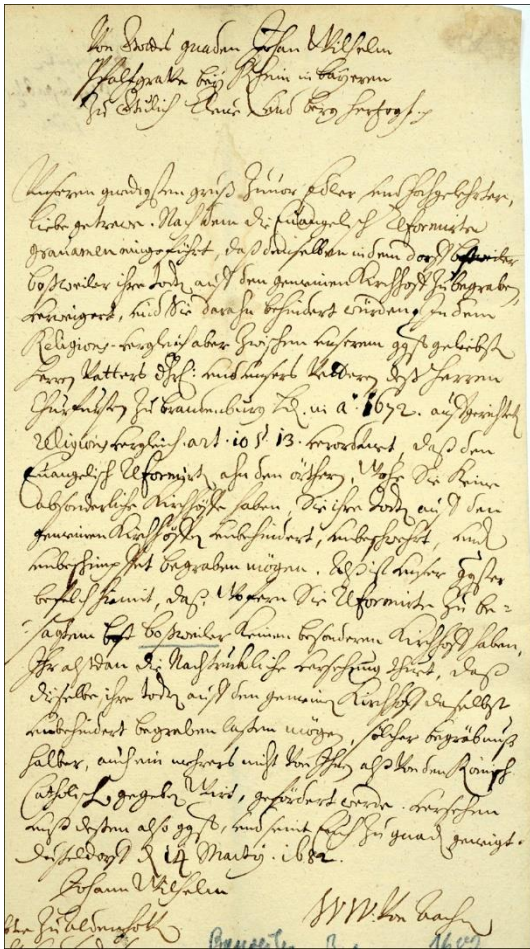 Von Gottes gnaden Johan Wilhelm
Pfaltzgrave bey Rhein in bayeren
zu Gülich Cleve und berg Hertzog
Unseren gnädigsten gruß zuvor Edler und hochgelehrter,
liebe getrewe. Nachdem die Evangelisch Reformirte
daß denselben in dem dorff
boßweiler ihre todten auff den gemeinen Kirchhoff zu begraben
verweigert, und Sie daran behindert würden, In dem
Religions-vergleich aber zwischen unserem ggst geliebsten
Herren Vatters und unsers Vetteren deß Herren
Churfürsten zu brandenburg Ld. in aº 1672. auffgerichteten
Religions vergleich. art. 10 § 13. verordnet, daß den
Evangelisch Reformirten ahn den örtheren, Wohe Sie keine
absonderliche Kirchhöffe haben, Sie ihre todten auff den
gemeinen Kirchhöffen unbehindert, und
unbeschimpfet begraben mögen. Alß ist unser ggster
befelch hiemit, daß, Wofern Sie Reformirte zu be-
sagtem boßweiler keinen besonderen Kirchhoff haben,
Ihr alßdan die Nachtrückliche versehung thuet, daß
dieselbe ihre todten auff den gemeinen Kirchhoff daselbst
unbehindert begraben lassen mögen, solcher begräbnuß
halber, auch ein mehrers nicht von Ihnen alß von den Römisch
Catholischen gegeben Wirt, gefördert werde. versehen
unß dessen also ggst, und seint Euch zu gnaden geneigt.
Düsseldorff d 14 Martij. 1682.
Johann Wilhelm